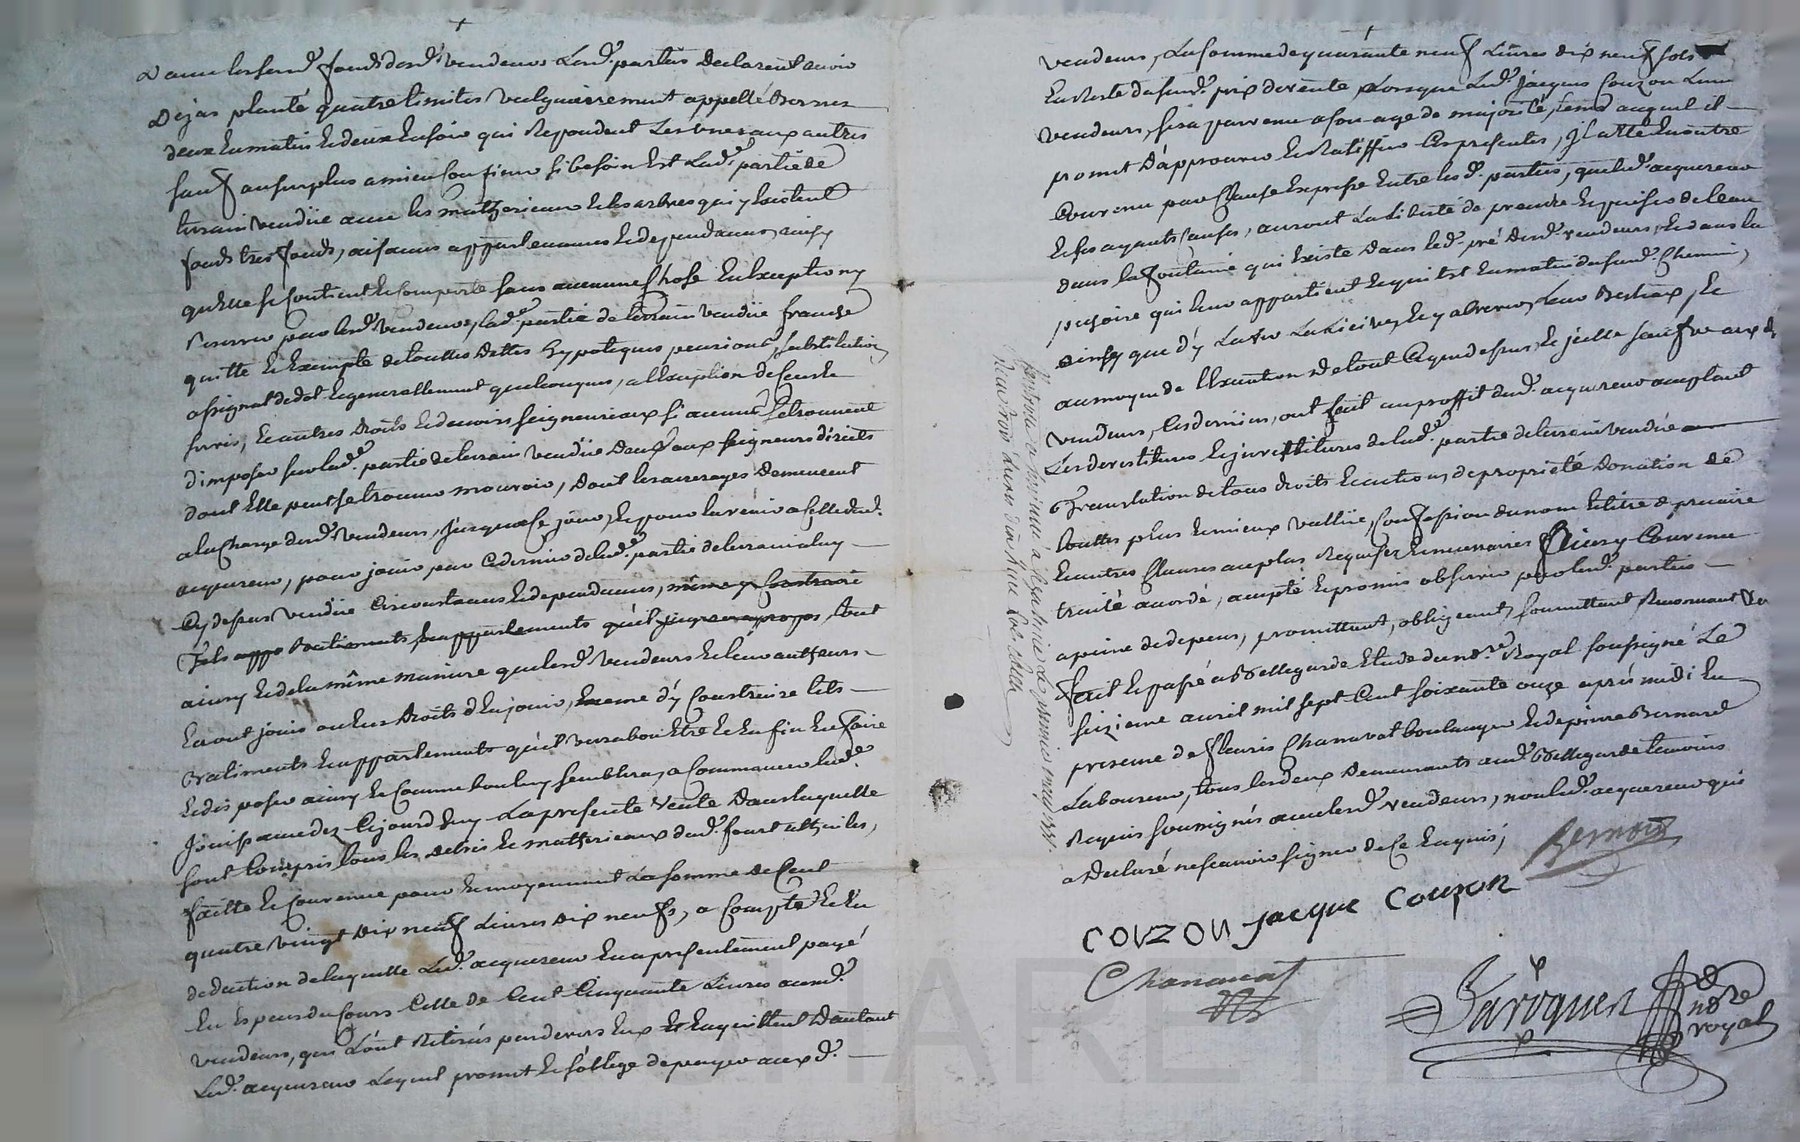 D'avec les susd. fonds desd. vendeurs Lesd. parties Declarent avoir
Dejas planté quatre limites vulguairement appellé Bornes
deux En matin Et deux En soir qui Repondent Les Unes aux autres
sauf au surplus a mieux Confiner si besoin Est Lad. partie de
terrain Vendüe avec les matheriaux Et les arbres qui y Existent
fonds tres fonds, aisances appartenances Et dependances, ainsy
qu'Elle se Contient Et Comporte sans aucune Chose En Exception ny
Reserve par lesd. Vendeurs, Lad. partie de terrain Vendüe franche
quitte Et Exempte de touttes dettes hypoteques pensions, substitution,
assignat de dot Et generallement quelconques, a l'Exception de Cens Et
servis, Et autres droits Et devoirs seigneuriaux si aucuns se trouvent
d'imposer sur lad. partie de terrain vendüe Deus aux seigneurs directs
dont Elle peut se trouver mouvoir, dont les arrerages Demeurent
a la Charge desd. Vendeurs, jusqu'a Ce jour, Et pour l'avenir a Celle dud.
acquereur, pour jouir par Ce dernier de lad. partie de terrain a luy
Cy dessus vendüe Circonstances Et dependances, même y Construire
tels batiments Et appartements qu'il jugera a propos, tout
ainsy Et de la même maniere que lesd. Vendeurs Et leurs autheurs
En ont joui ou Eus droits d'En jouir, Et meme d'y Construire tels
Batiments Et appartements qu'il verra bon Etre Et En fin En faire
Et disposer ainsy Et Comme bon luy semblera, a Commencer lad.
Jouissance dez Ce jourd'huy La presente Vente Dans laquelle
sont Compris tous les debris Et matheriaux dud. four Et thuiles,
faitte Et Convenue pour Et moyennant La somme de Cent
quatre vingt dix neuf Livres dix neuf s., a Compte Et En
deduction de laquelle Led. acquereur En a presentement payé
En Especes du Cours Celle de Cent Cinquante Livres auxd.
vendeurs, qui L'ont Retirés par devers Eux Et En quittent d'autant
Led. acquereur Lequel promet Et s'oblige de payer auxd.
vendeurs, La somme de quarante neuf Livres dix neuf sols
En Reste du susd. prix de vente, Lorsque Led. Jacques Couzon L'un
vendeurs, sera parvenu a son age de majorité, tems auquel il
promet D'approuver Et Ratiffier Ces presentes, Il a Eté En outre
Convenu par Clause Expresse Entre lesd. parties, que led. acquereur
Et ses ayants Causes, auront La liberté de prendre Et puiser de l'eau
dans la fontaine qui Existe Dans led. pré desd. vendeurs, Et dans la
pesoire qui leur appartient Et qui Est En matin du susd. Chemin,
ainsy que d'y Laver La Lecive, Et y abrever Leur Bestiaux, Et
au moyen de l'Execution de tout Ce que dessus, Et jcelle sauf Ve aux d.
vendeurs, Ces derniers, ont fait au profit dud. acquereur acceptant
Les devestitures Et jnvestitures de lad. partie de terrain vendüe
Translation de tous droits Et actions de propriété Donation de
touttes plus Et mieux vallüe, Confession du nom Et titre de precaire
Et autres Clauses au plus Requises Et necessaires Ainsy Convenu
traité acordé, accepté Et promis observer par lesd. parties
a peine de depens, promettant, obligeant, soumettant Renonçant Et
Fait Et passé a Bellegarde Etude du nore. Royal soussigné Le
seizieme avril mil sept Cent soixante onze après midi En
presence de fleuris Chanavat boulanger Et de pierre Bernard
Laboureur, tous les deux Demeurants aud. Bellegarde temoins
Requis soussignés avec lesd. vendeurs, non led. acquereur qui
a Declaré ne scavoir signer de Ce Enquis,
Bernard
COUZON jacque Couzon
Chanavat
nore
royal